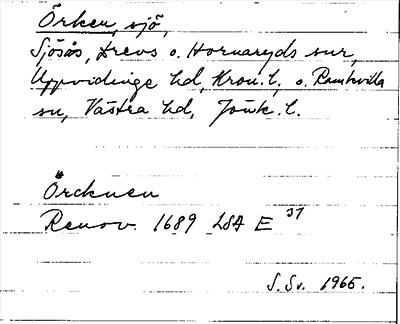 Örken, sjö,
Sjösås, Drevs o. Hornaryds snr,
Uppvidinge hd, Kron. l., o. Ramkvilla
sn, Västra hd, Jönk. l.
Örcknen
Renov. 1689 LSA E 37
S. Sv. 1965.